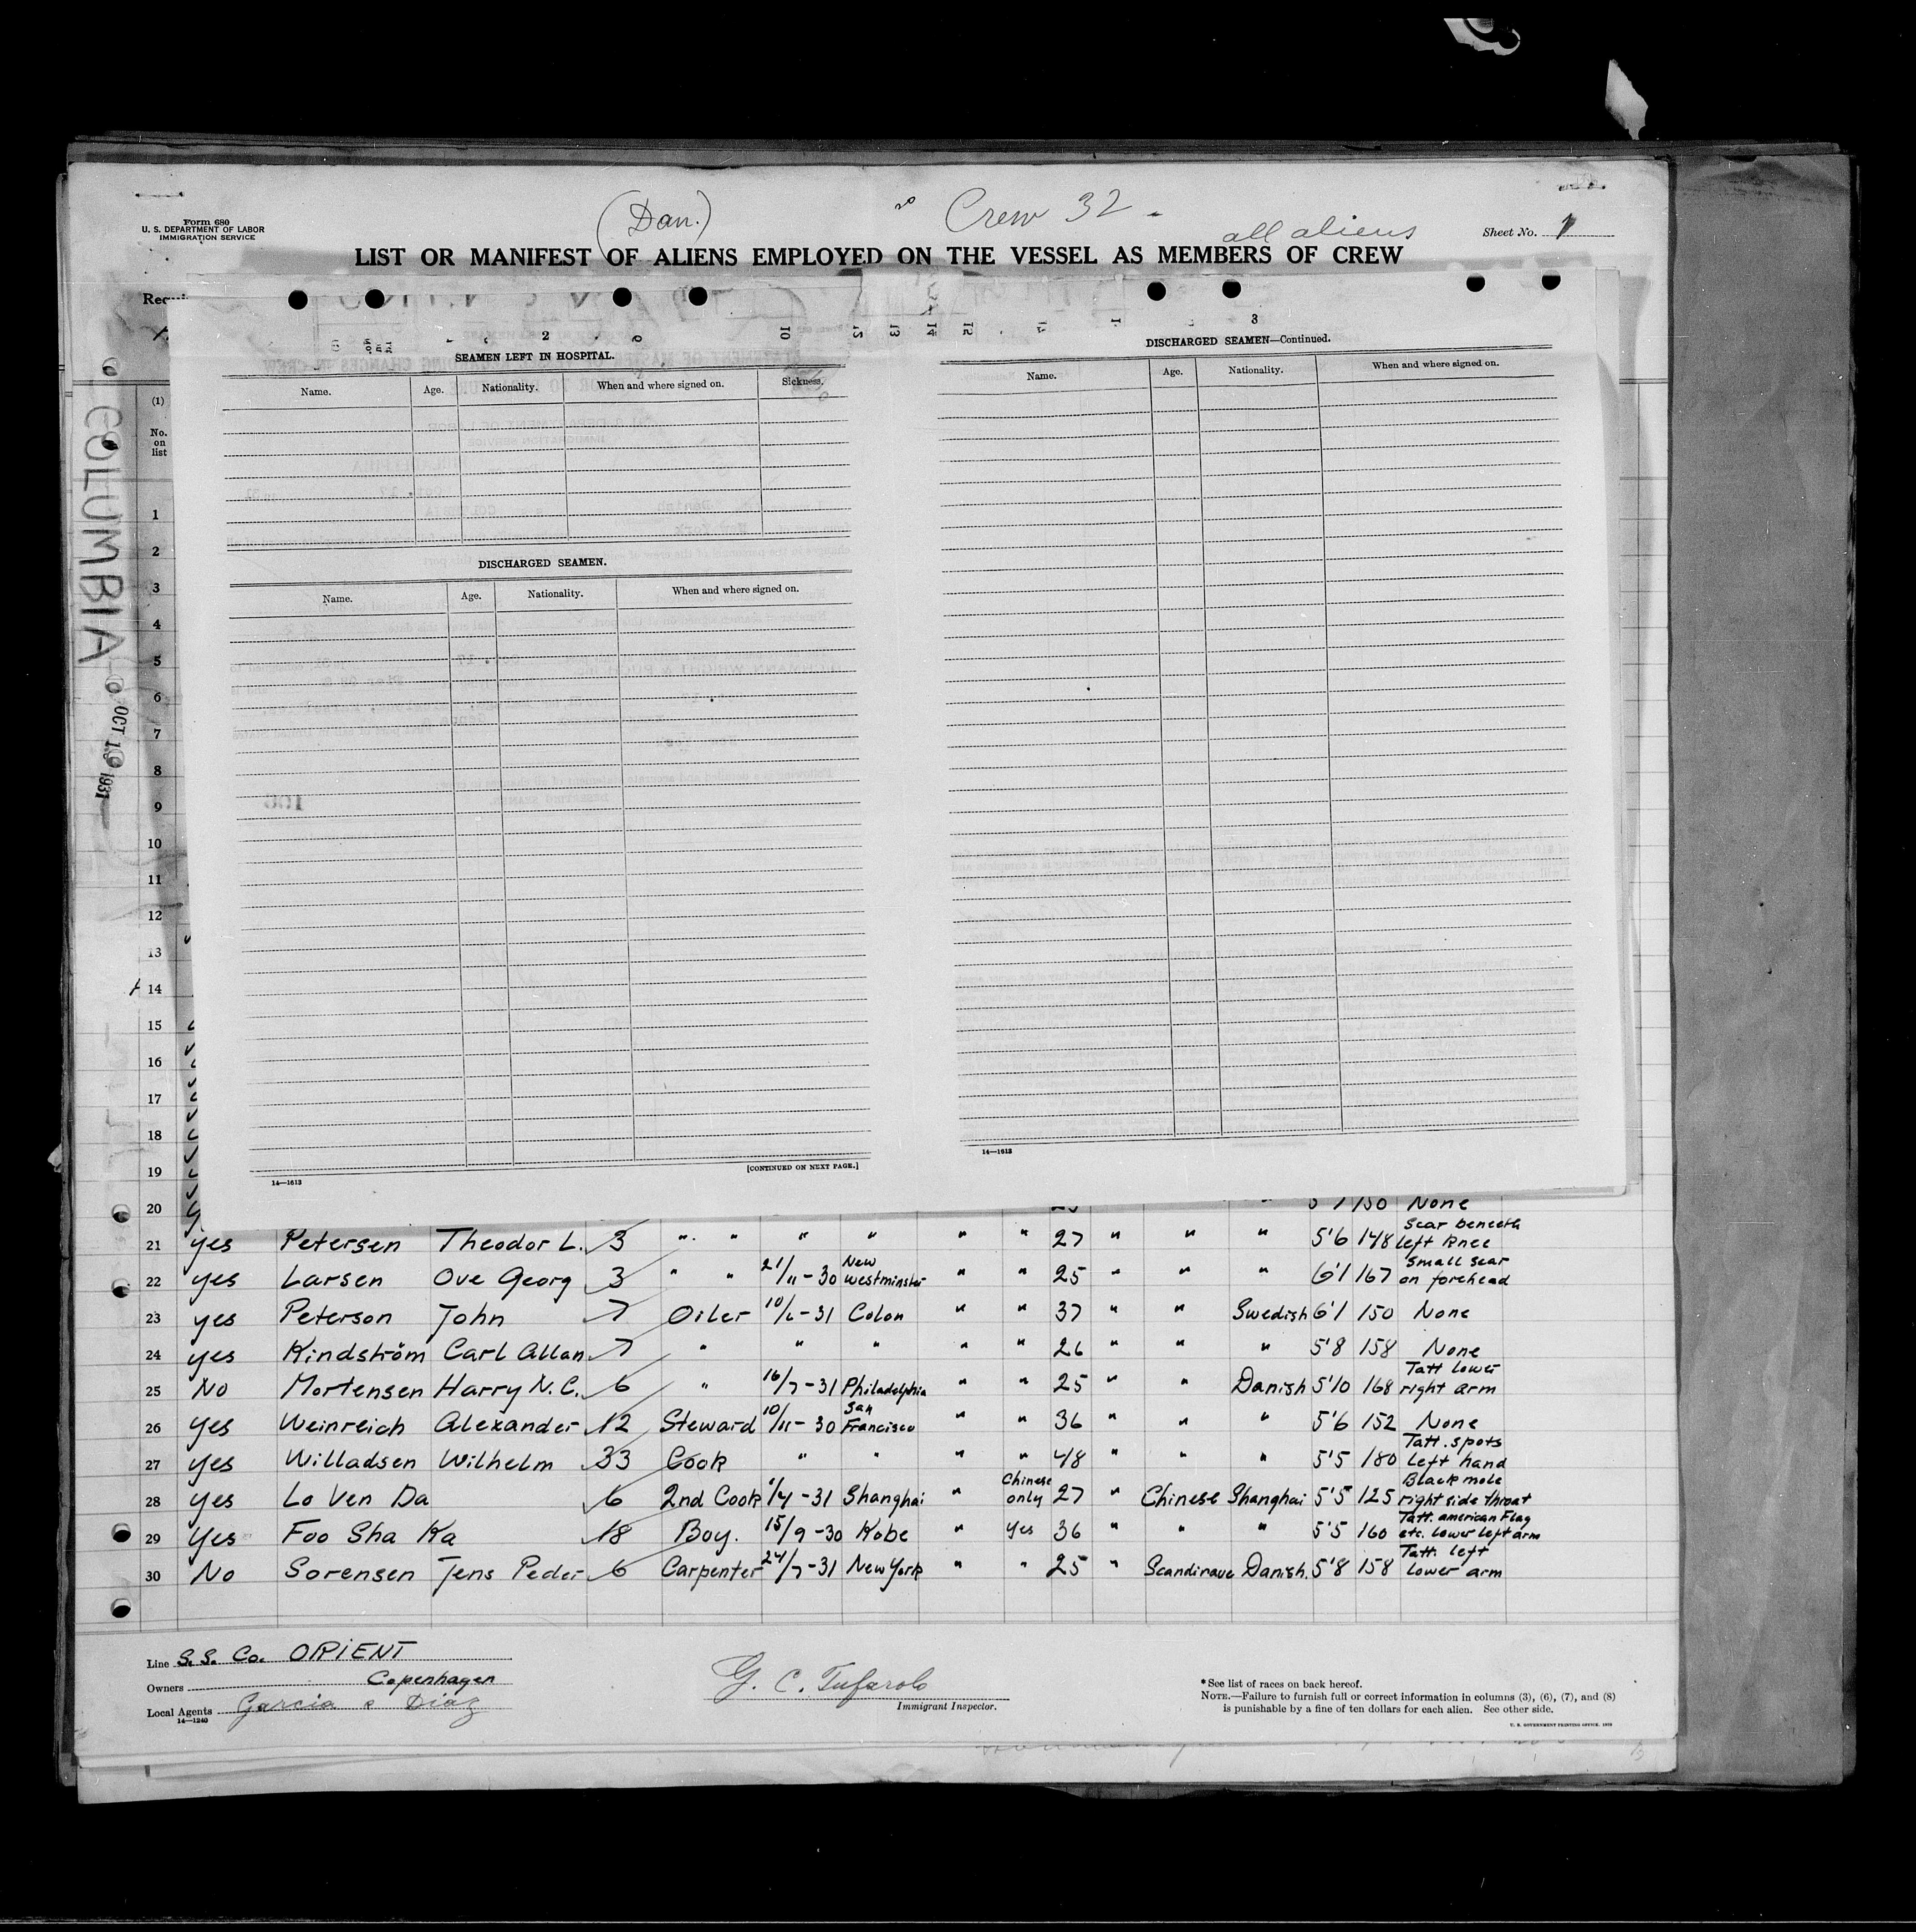 (Dan.)
Crew 32 -
all aliens
Form 680
U. S. DEPARTMENT OF LABOR
IMMIGRATION SERVICE
Sheet No. 1
LIST OR MANIFEST OF ALIENS EMPLOYED ON THE VESSEL AS MEMBERS OF CREW
COLUMBIA
OCT 19 1931
(1)
No. on list
2
SEAMEN LEFT IN HOSPITAL.
Name. Age. Nationality. When and where signed on. Sickness.
DISCHARGED SEAMEN.
Name. Age. Nationality. When and where signed on.
[CONTINUED ON NEXT PAGE.]
14—1613
3
DISCHARGED SEAMEN—Continued.
Name. Age. Nationality. When and where signed on.
14—1613
1
2
3
4
5
6
7
8
9
10
11
12
13
14
15
16
17
18
19
20 150 None
21 yes Petersen Theodor L. 3 " " " " " " 27 " " " 5'6 148 Scar beneath left knee
22 yes Larsen Ove Georg 3 " " 21/11-30 New Westminster " " 25 " " " 6'1 167 Small scar on forehead
23 yes Peterson John 7 Oiler 10/6-31 Colon " " 37 " " Swedish 6'1 150 None
24 yes Kindström Carl Allan 7 " " " " " 26 " " " 5'8 158 None
25 No Mortensen Harry N.C. 6 " 16/7-31 Philadelphia " " 25 " " Danish 5'10 168 Tatt lower right arm
26 yes Weinreich Alexander 12 Steward 10/11-30 San Francisco " " 36 " " " 5'6 152 None
27 yes Willadsen Wilhelm 33 Cook " " " " 48 " " " 5'5 180 Tatt. spots left hand
28 yes Lo Ven Da 6 2nd Cook 1/4-31 Shanghai " Chinese only 27 " Chinese Shanghai 5'5 125 Black mole right side throat
29 Yes Foo Sha Ka 18 Boy. 15/9-30 Kobe " Yes 36 " " " 5'5 160 Tatt. american Flag etc. lower left arm
30 No Sorensen Jens Peder 6 Carpenter 24/7-31 New York " " 25 " Scandinave Danish. 5'8 158 Tatt. left lower arm
Line S.S. Co. ORIENT
Owners Copenhagen
Local Agents Garcia & Diaz
14—1240
G. C. Tufarolo
Immigrant Inspector.
* See list of races on back hereof.
NOTE.—Failure to furnish full or correct information in columns (3), (6), (7), and (8)
is punishable by a fine of ten dollars for each alien. See other side.
U. S. GOVERNMENT PRINTING OFFICE. 1929